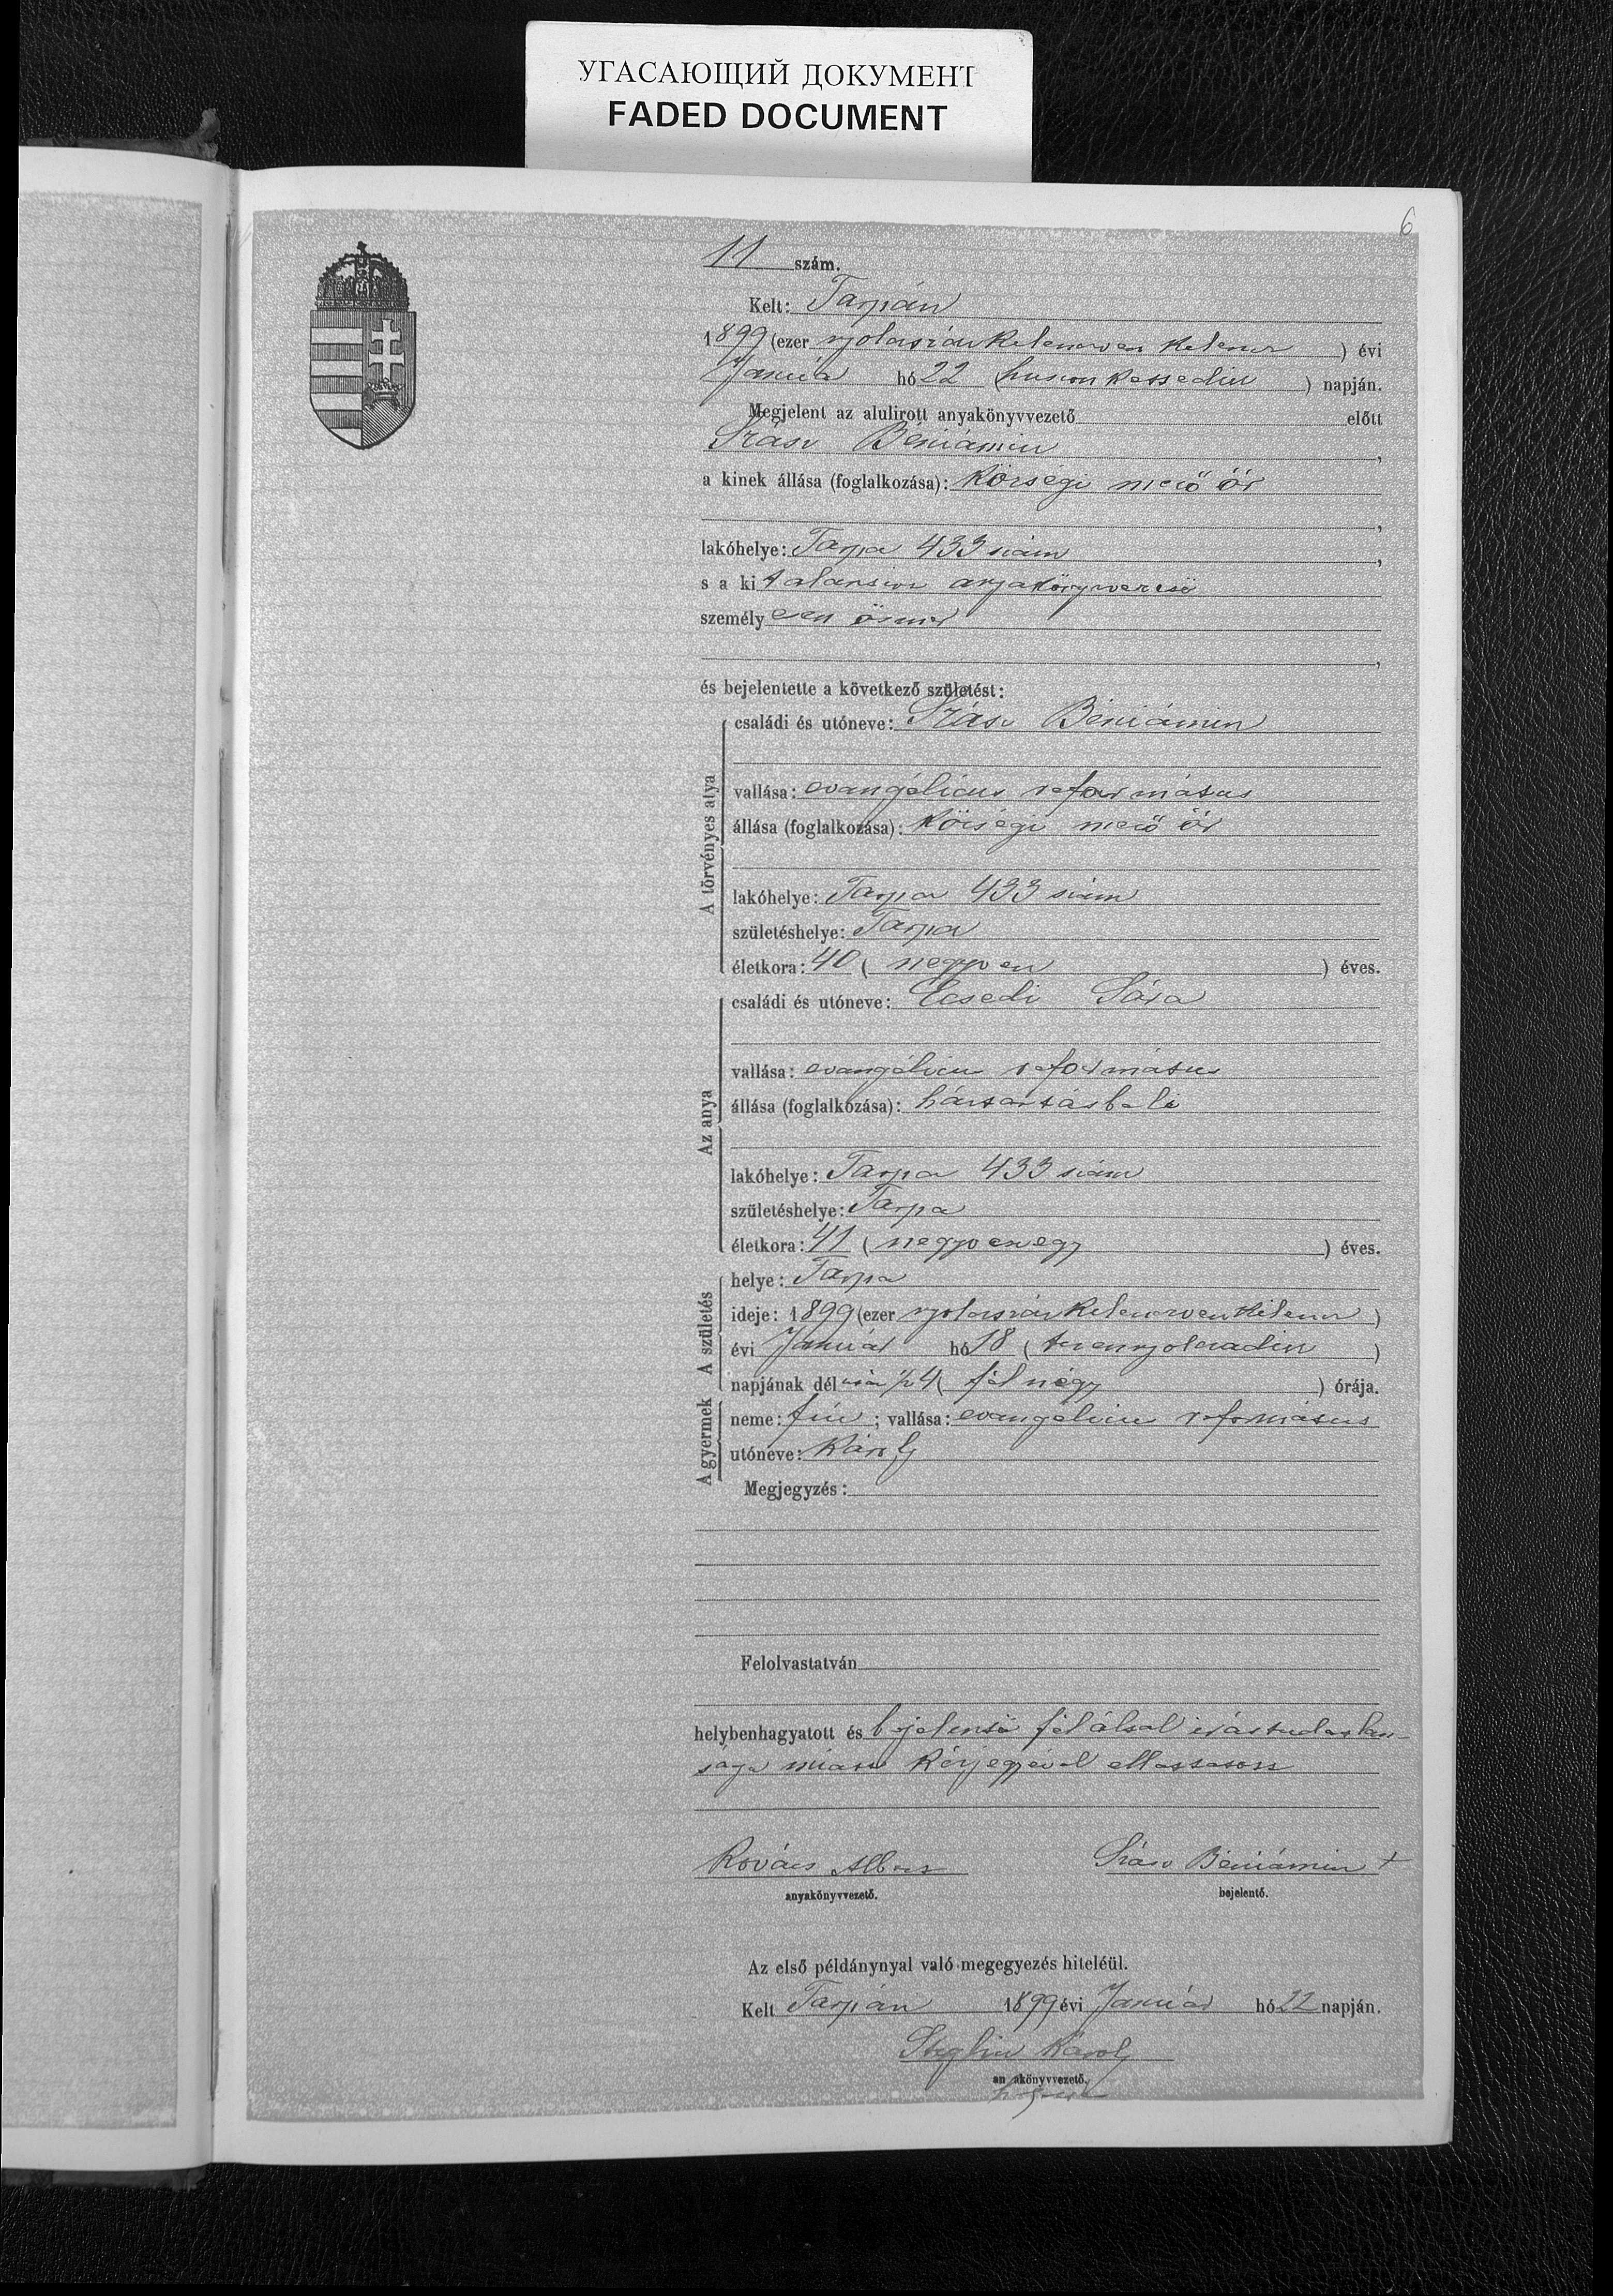 УГАСАЮЩИЙ ДОКУМЕНТ
FADED DOCUMENT
6
11 szám.
Kelt: Tarpán
1899 (ezer nyolczszázkilenczvenkilencz) évi
Január hó 22 (huszonkettedik) napján.
Megjelent az alulirott anyakönyvvezető előtt
Szász Béniámin,
a kinek állása (foglalkozása): Községi mező őr
,
lakóhelye: Tarpa 433 szám,
s a ki t alantirt anyakönyvvezető
személy esen ösmer
,
és bejelentette a következő születést:
A törvényes atya
családi és utóneve: Szász Béniámin
vallása: evangélicus református
állása (foglalkozása): Községi mező őr
lakóhelye: Tarpa 433 szám
születéshelye: Tarpa
életkora: 40 (negyven) éves.
Az anya
családi és utóneve: Ecsedi Sára
vallása: evangélicus református
állása (foglalkozása): háztartásbeli
lakóhelye: Tarpa 433 szám
születéshelye: Tarpa
életkora: 41 (negyvenegy) éves.
A születés
helye: Tarpa
ideje: 1899 (ezer nyolczszázkilenczvenkilencz)
évi Január hó 18 (tizennyolczadik)
napjának dél után ½4 (fél négy) órája.
A gyermek
neme: fiú; vallása: evangélicus református
utóneve: Károly
Megjegyzés:
Felolvastatván
helybenhagyatott és bejelentő fél által irástudatlan-
sága miatt kézjegyével elláttatott
Kovács Albert
anyakönyvvezető.
Szász Béniámin +
bejelentő.
Az első példánynyal való megegyezés hiteléül.
Kelt Tarpán 1899 évi Január hó 22 napján.
Károly
anyakönyvvezető.